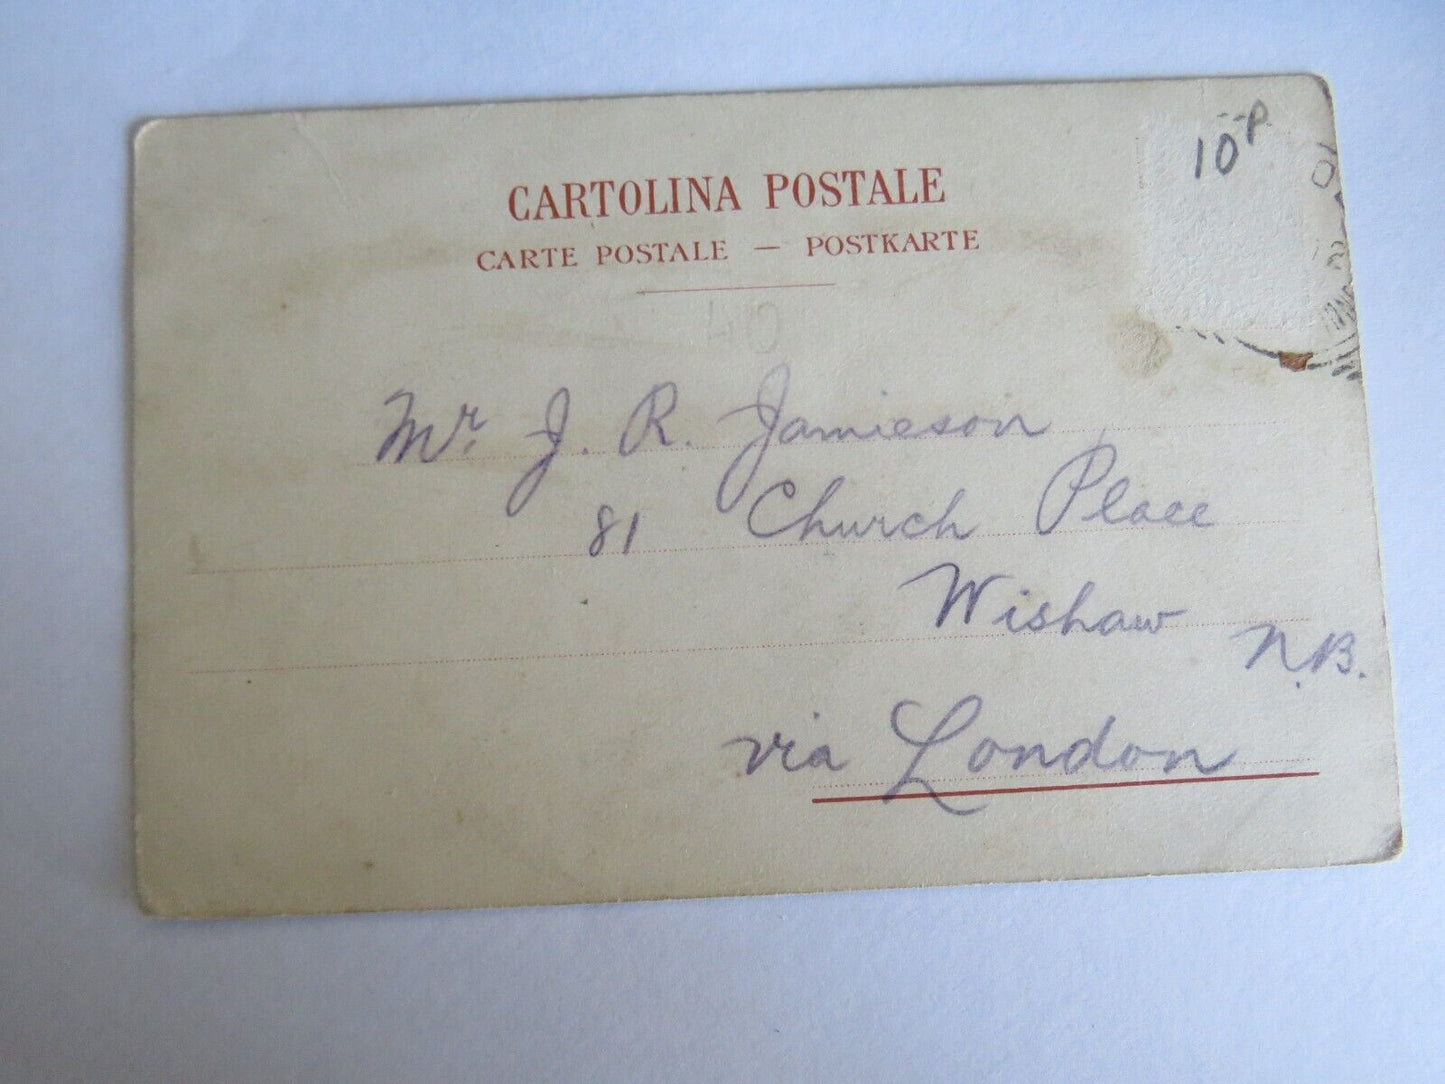 10P.
CARTOLINA POSTALE
CARTE POSTALE — POSTKARTE
04
Mr. J. R. Jamieson
81 Church Place
Wishaw
N.B.
via London